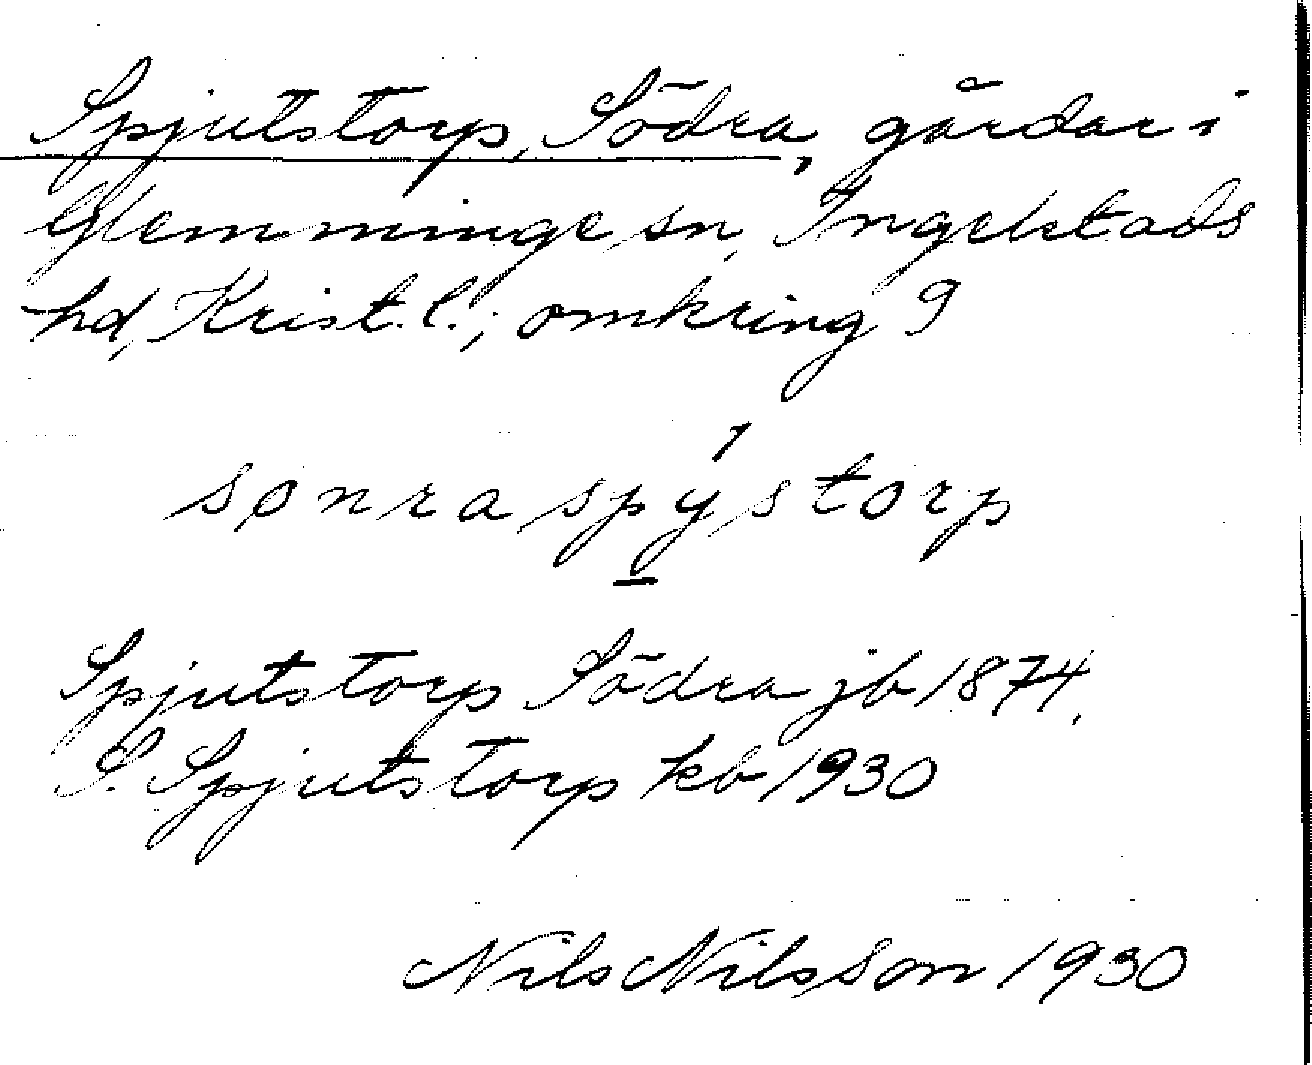 Spjutstorp, Södra, gårdar i
Glemminge sn, Ingelstads
hd, Krist. l.; omkring 9
sonraspýstorp
Spjutstorp Södra jb 1874,
S. Spjutstorp kb 1930
Nils Nilsson 1930